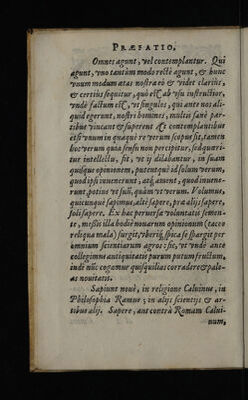 PRÆFATIO.
Omnes agunt, vel contemplantur. Qui
agunt, vno tantùm modo rectè agunt, & hunc
vnum modum ætas nostra eò & videt clariùs,
& certiùs sequitur, quò est ab vsu instructior,
vndè factum est, vt singulos, qui ante nos ali-
quid egerunt, nostri homines, multis sanè par-
tibus vincant & superent. At contemplantibus
etsi vnum in quáque re verum scopus sit, tamen
hoc verum quia sensu non percipitur, sed quæri-
tur intellectu, fit, vt ij dilabantur, in suam
quisque opinionem, putentque id solum verum,
quod ipsi inuenerunt; atque ament, quod inuene-
runt, potiùs vt suũ, quàm vt verum. Volumus,
quicunque sapimus, altè sapere, præ alijs sapere,
soli sapere. Ex hac peruersa voluntatis semen-
te, messis illa bodiè nouarum opinionum (taceo
reliqua mala) surgit, vberique spica se spargit per
omnium scientiarum agros: sic, vt vndè ante
collegimus antiquitatis purum putum frustum,
indè nũc cogamur quisquilias corradere & pale-
as nouitatis.
Sapiunt nouè, in religione Caluinus, in
Philosophia Ramus; in alijs scientijs & ar-
tibus alij. Sapere, aut contrà Romam Calui-
num,